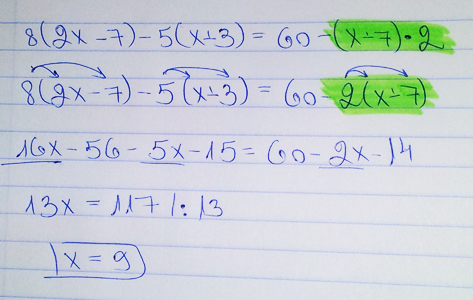 8(2x-7)-5(x+3)=60-(x+7)·2
8(2x-7)-5(x+3)=60-2(x+7)
16x-56-5x-15=60-2x-14
13x=117/:13
x=9